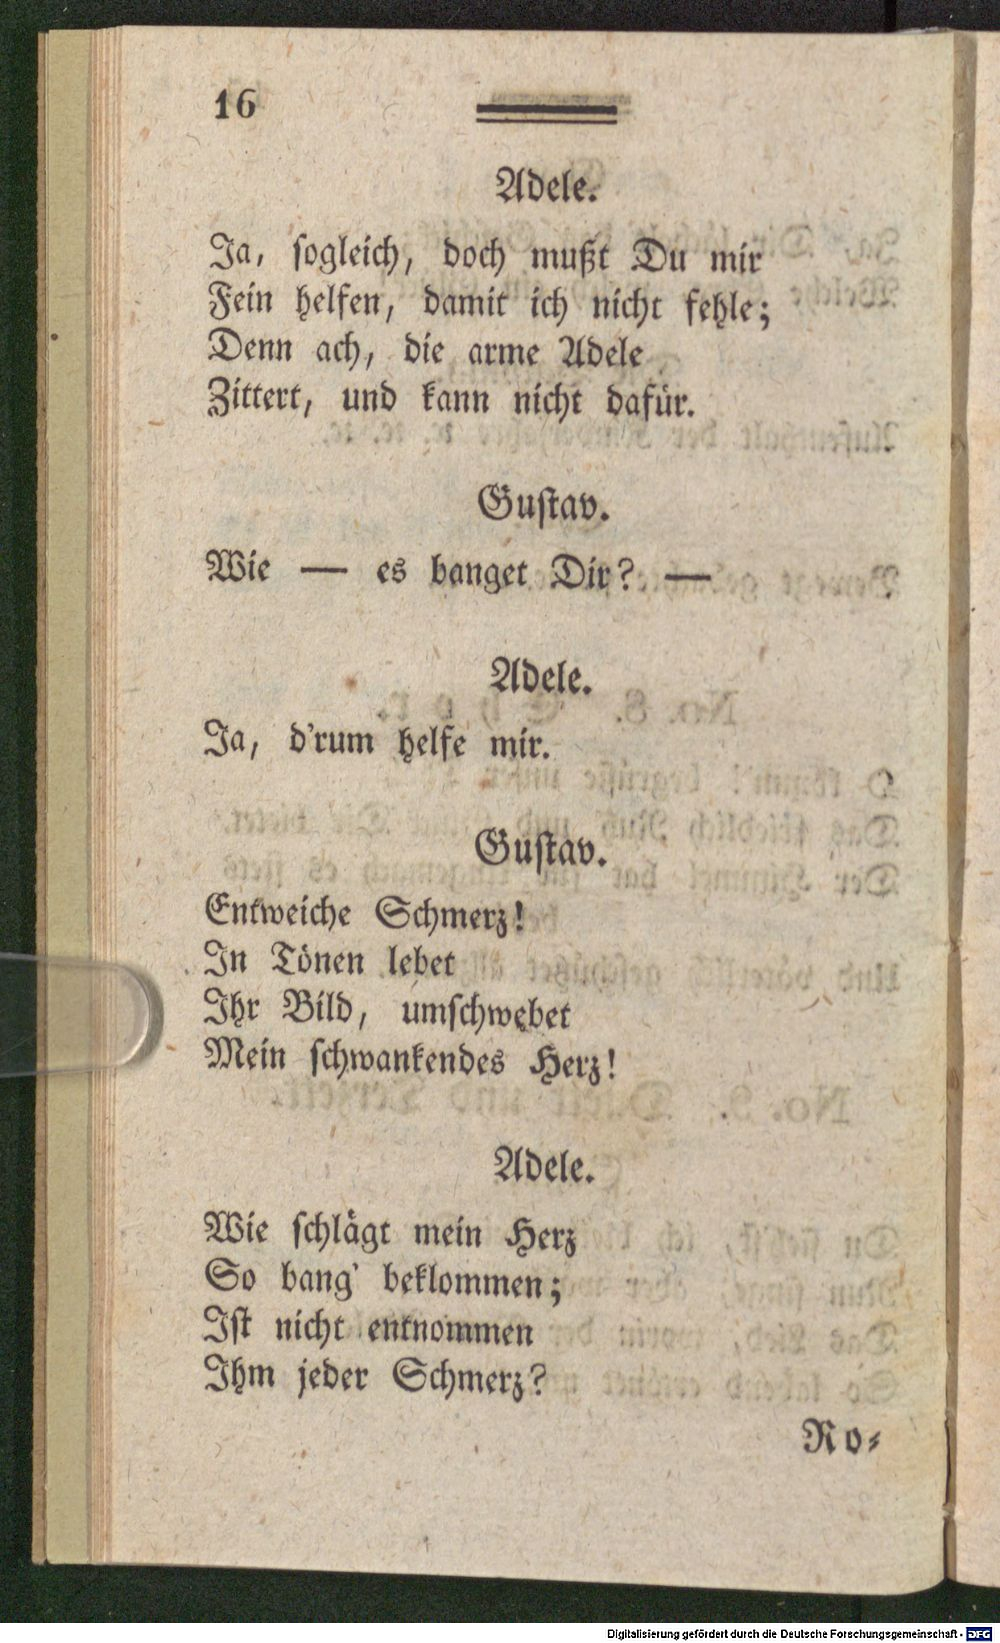 16
Adele.
Ja, ſogleich, doch mußt Du mir
Fein helfen, damit ich nicht fehle;
Denn ach, die arme Adele
Zittert, und kann nicht dafür.
Guſtav.
Wie — es banget Dir? —
Adele.
Ja, d'rum helfe mir.
Guſtav.
Entweiche Schmerz!
In Tönen lebet
Ihr Bild, umſchwebet
Mein ſchwankendes Herz!
Adele.
Wie ſchlägt mein Herz
So bang' beklommen;
Iſt nicht entnommen
Ihm jeder Schmerz?
Ro⸗
Digitalisierung gefördert durch die Deutsche Forschungsgemeinschaft - DFG